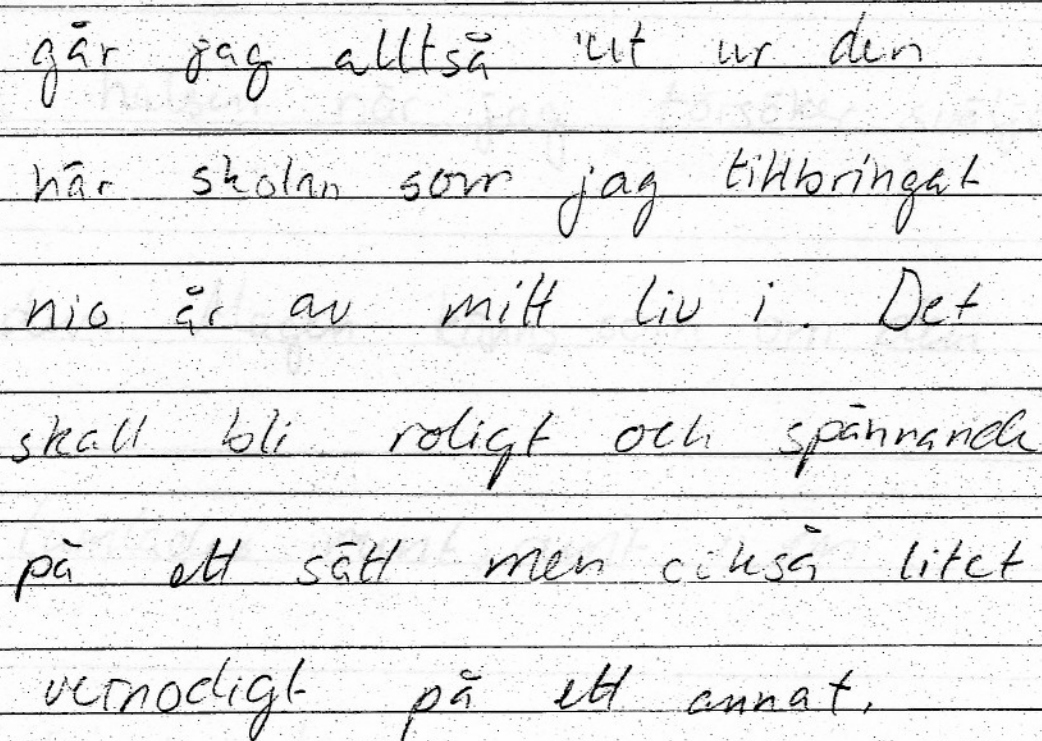 går jag alltså ut ur den
här skolan som jag tillbringat
nio år av mitt liv i. Det
skall bli roligt och spännande
på ett sätt men också litet
vemodigt på ett annat.